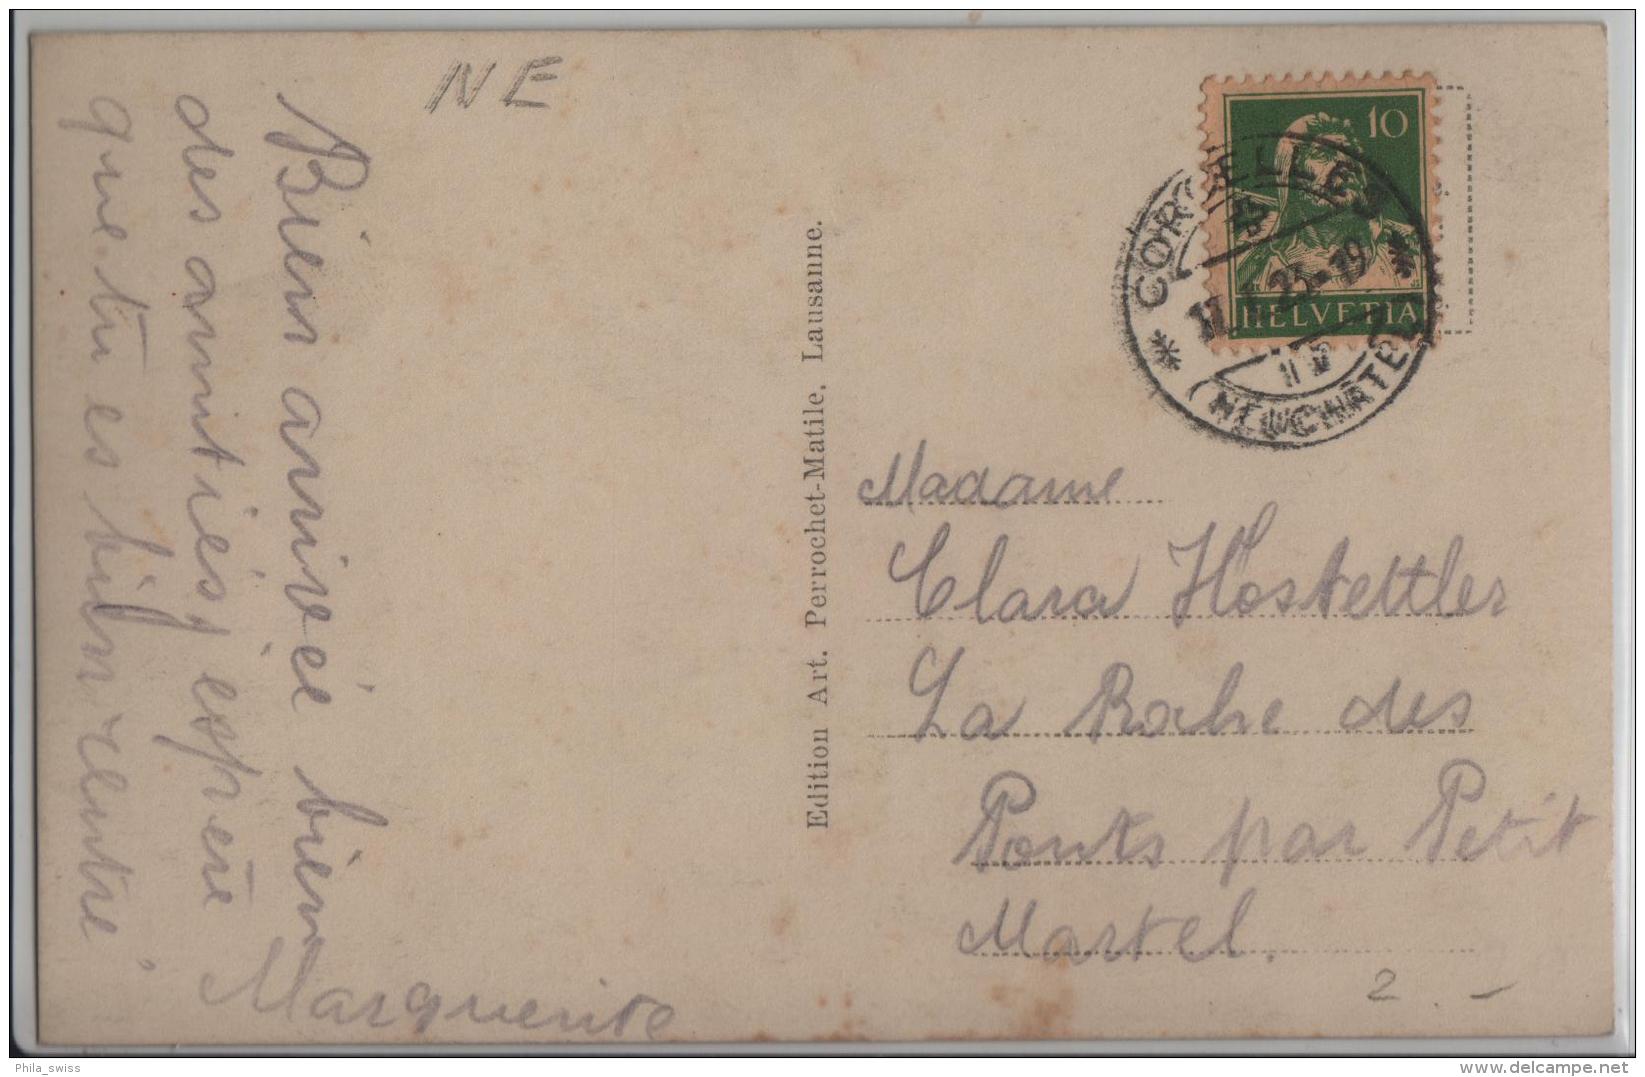 NE
Bien arrivée bien
des amitiés, espère
que tu es bien rentré.
Marguerite
Edition Art. Perrochet-Matile, Lausanne.
10
HELVETIA
CORCELLES
(NEUCHATEL)
Madame
Clara Hostettler
La Roche des
Ponts par Petit
Martel.
2.-
Phila_swiss
delcampe.net